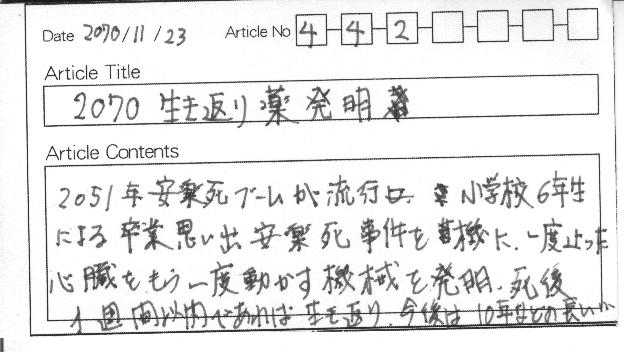 Date 2070/11/23 Article No 4-4-2
Article Title
2070 生き返り薬発明
Article Contents
2051年安楽死ブームが流行し. 小学校6年生
による卒業思い出安楽死事件を機に、一度止った
心臓をもう一度動かす機械を発明、死後
1週間以内であれば生き返り、今後は10年などの長いか